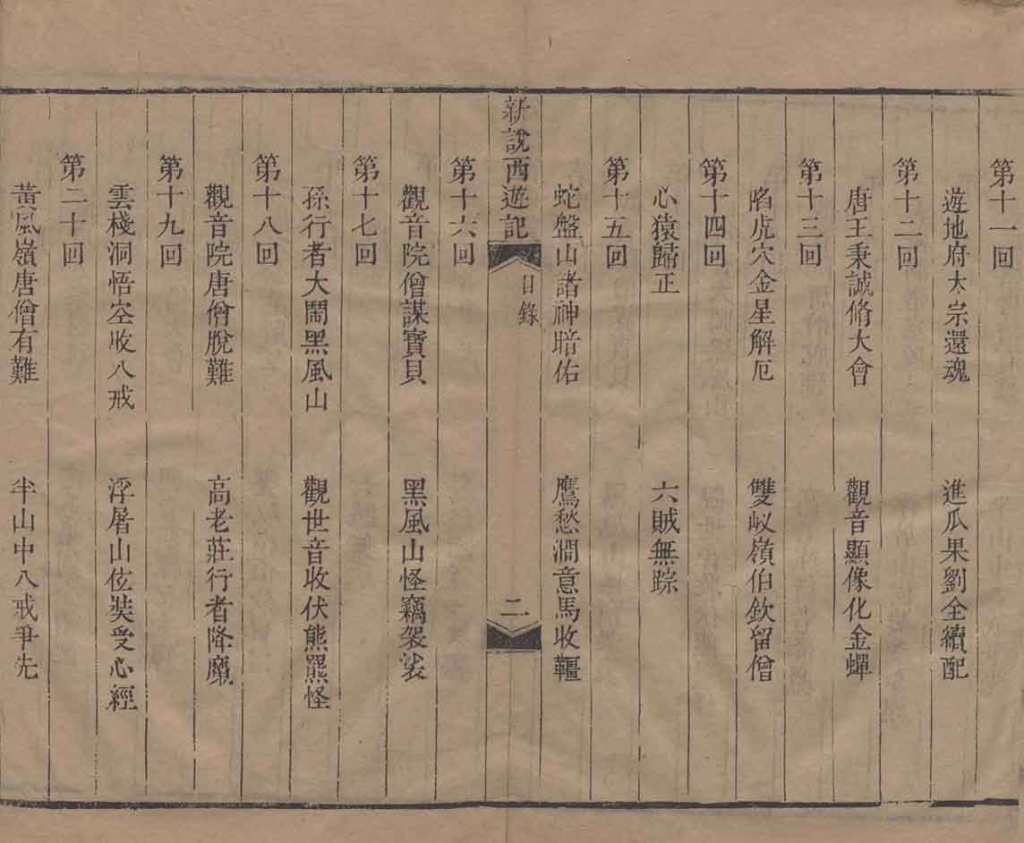 第十一回
遊地府太宗還魂　進瓜果劉全續配
第十二回
唐王秉誠脩大會　觀音顯像化金蟬
第十三回
陷虎穴金星解厄　雙蚁嶺伯欽留僧
第十四回
心猿歸正　六賊無踪
第十五回
蛇盤山諸神暗佑　鷹愁澗意馬收韁
新說西遊記　目錄　二
第十六回
觀音院僧謀寶貝　黑風山怪竊袈裟
第十七回
孫行者大鬧黑風山　觀世音收伏熊羆怪
第十八回
觀音院唐僧脫難　高老莊行者降魔
第十九回
雲棧洞悟空收八戒　浮屠山伭奘受心經
第二十回
黃風嶺唐僧有難　半山中八戒爭先